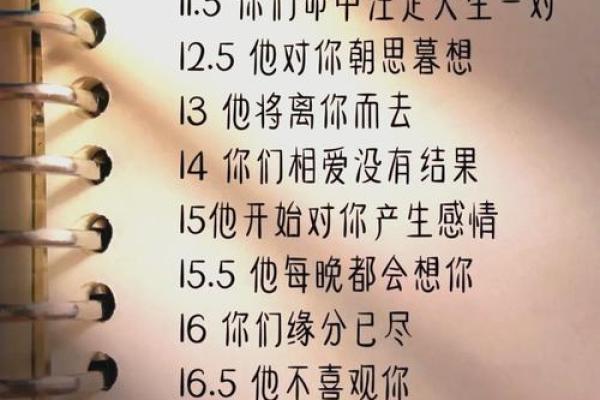 11.5 你们命中注定天生一对
12.5 他对你朝思暮想
13 他将离你而去
14 你们相爱没有结果
15他开始对你产生感情
15.5 他每晚都会想你
16 你们缘分已尽
16.5 他不喜观你